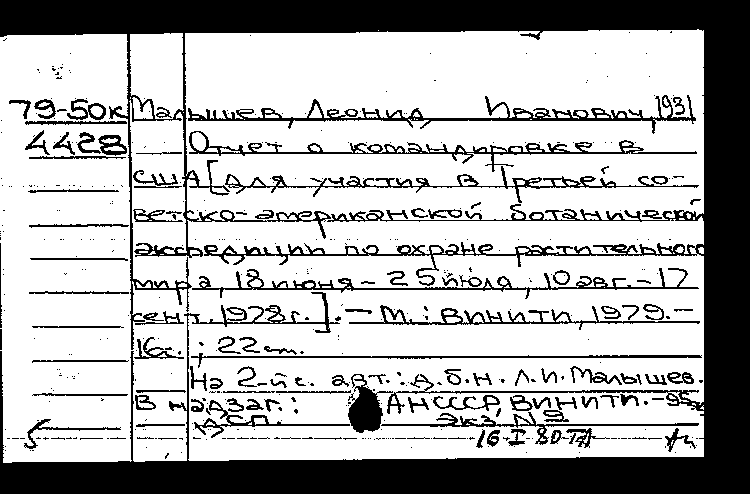 79-50к Малышев, Леонид Иванович, 1931
4428 Отчет о командировке в
США [для участия в Третьей со-
ветско-американской ботанической
экспедиции по охране растительного
мира, 18 июня - 25 июля, 10 авг. - 17
сент. 1978г.]. - М.: ВИНИТИ, 1979. -
16с.; 22см.
На 2-й с. авт.: д.б.н. Л.И. Малышев.
В надзаг.: АНСССР, ВИНИТИ. -
Экз №
16 I 80
5